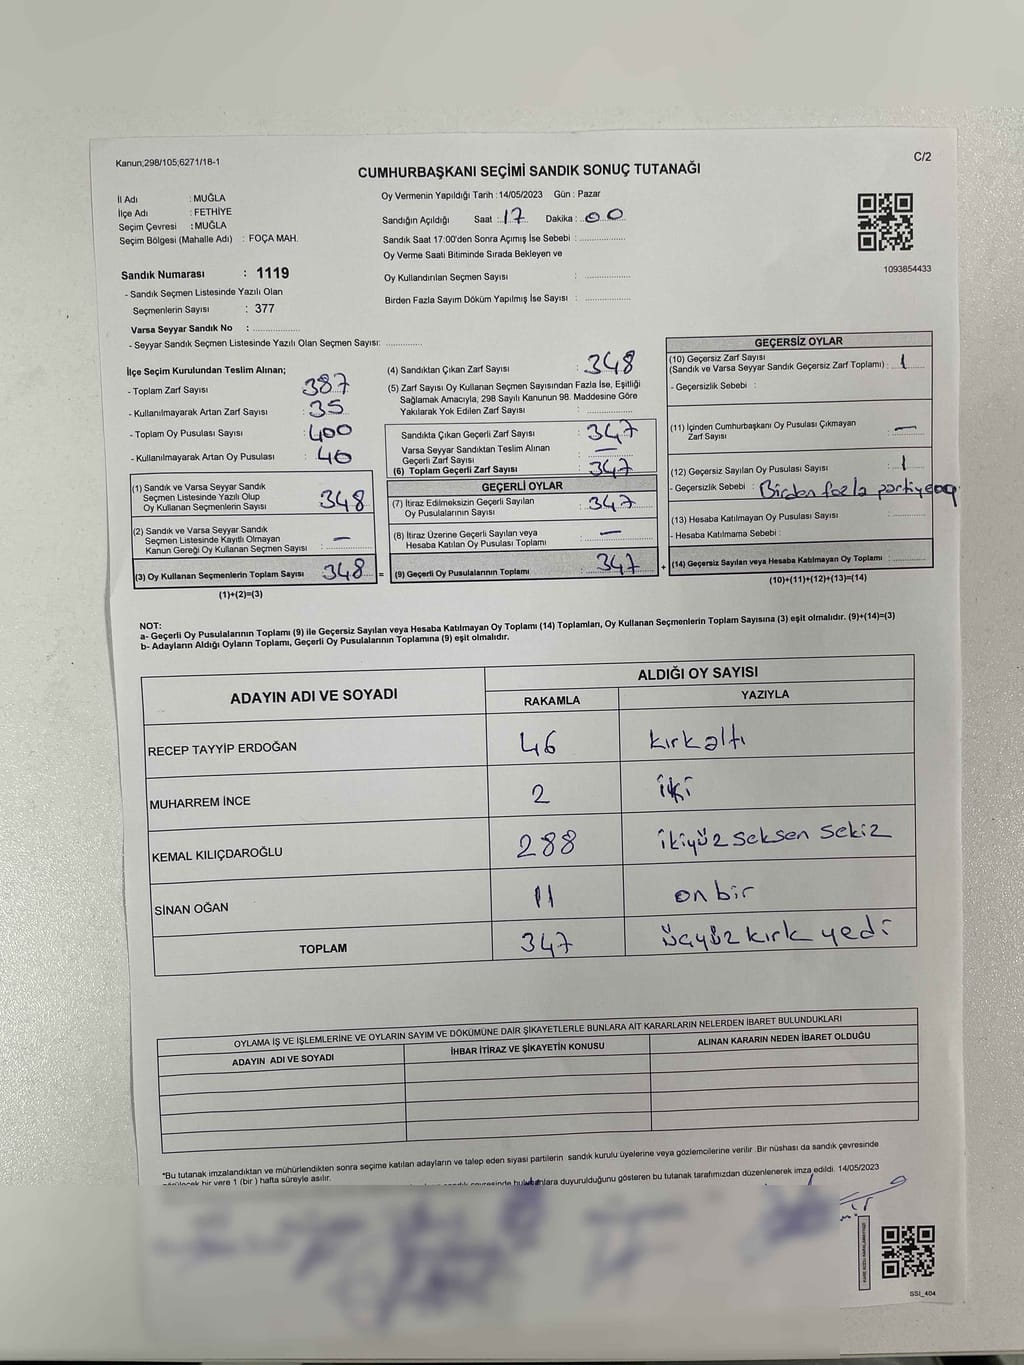 Kanun;298/105;6271/18-1
C/2
CUMHURBAŞKANI SEÇİMİ SANDIK SONUÇ TUTANAĞI
İl Adı : MUĞLA
İlçe Adı : FETHİYE
Seçim Çevresi : MUĞLA
Seçim Bölgesi (Mahalle Adı) : FOÇA MAH.
Oy Vermenin Yapıldığı Tarih : 14/05/2023 Gün : Pazar
Sandığın Açıldığı Saat : 17 Dakika : 00
Sandık Saat 17:00'den Sonra Açımış İse Sebebi :
Oy Verme Saati Bitiminde Sırada Bekleyen ve
Oy Kullandırılan Seçmen Sayısı :
Birden Fazla Sayım Döküm Yapılmış İse Sayısı :
1093854433
Sandık Numarası : 1119
- Sandık Seçmen Listesinde Yazılı Olan
Seçmenlerin Sayısı : 377
Varsa Seyyar Sandık No :
- Seyyar Sandık Seçmen Listesinde Yazılı Olan Seçmen Sayısı:
İlçe Seçim Kurulundan Teslim Alınan;
- Toplam Zarf Sayısı : 387
- Kullanılmayarak Artan Zarf Sayısı : 35
- Toplam Oy Pusulası Sayısı : 400
- Kullanılmayarak Artan Oy Pusulası : 40
(1) Sandık ve Varsa Seyyar Sandık
Seçmen Listesinde Yazılı Olup
Oy Kullanan Seçmenlerin Sayısı : 348
(2) Sandık ve Varsa Seyyar Sandık
Seçmen Listesinde Kayıtlı Olmayan
Kanun Gereği Oy Kullanan Seçmen Sayısı : —
(3) Oy Kullanan Seçmenlerin Toplam Sayısı : 348 =
(1)+(2)=(3)
(4) Sandıktan Çıkan Zarf Sayısı : 348
(5) Zarf Sayısı Oy Kullanan Seçmen Sayısından Fazla İse, Eşitliği
Sağlamak Amacıyla, 298 Sayılı Kanunun 98. Maddesine Göre
Yakılarak Yok Edilen Zarf Sayısı :
Sandıkta Çıkan Geçerli Zarf Sayısı : 347
Varsa Seyyar Sandıktan Teslim Alınan
Geçerli Zarf Sayısı : —
(6) Toplam Geçerli Zarf Sayısı : 347
GEÇERLİ OYLAR
(7) İtiraz Edilmeksizin Geçerli Sayılan
Oy Pusulalarının Sayısı : 347
(8) İtiraz Üzerine Geçerli Sayılan veya
Hesaba Katılan Oy Pusulası Toplamı : —
(9) Geçerli Oy Pusulalarının Toplamı : 347 +
GEÇERSİZ OYLAR
(10) Geçersiz Zarf Sayısı
(Sandık ve Varsa Seyyar Sandık Geçersiz Zarf Toplamı) : 1
- Geçersizlik Sebebi :
(11) İçinden Cumhurbaşkanı Oy Pusulası Çıkmayan
Zarf Sayısı : —
(12) Geçersiz Sayılan Oy Pusulası Sayısı : 1
- Geçersizlik Sebebi : Birden fazla partiye oy.
(13) Hesaba Katılmayan Oy Pusulası Sayısı :
- Hesaba Katılmama Sebebi :
(14) Geçersiz Sayılan veya Hesaba Katılmayan Oy Toplamı :
(10)+(11)+(12)+(13)=(14)
NOT:
a- Geçerli Oy Pusulalarının Toplamı (9) ile Geçersiz Sayılan veya Hesaba Katılmayan Oy Toplamı (14) Toplamları, Oy Kullanan Seçmenlerin Toplam Sayısına (3) eşit olmalıdır. (9)+(14)=(3)
b- Adayların Aldığı Oyların Toplamı, Geçerli Oy Pusulalarının Toplamına (9) eşit olmalıdır.
ADAYIN ADI VE SOYADI
ALDIĞI OY SAYISI
RAKAMLA YAZIYLA
RECEP TAYYİP ERDOĞAN 46 kırk altı
MUHARREM İNCE 2 iki
KEMAL KILIÇDAROĞLU 288 ikiyüz seksen sekiz
SİNAN OĞAN 11 on bir
TOPLAM 347 üçyüz kırk yedi
OYLAMA İŞ VE İŞLEMLERİNE VE OYLARIN SAYIM VE DÖKÜMÜNE DAİR ŞİKAYETLERLE BUNLARA AİT KARARLARIN NELERDEN İBARET BULUNDUKLARI
ADAYIN ADI VE SOYADI İHBAR İTİRAZ VE ŞİKAYETİN KONUSU ALINAN KARARIN NEDEN İBARET OLDUĞU
*Bu tutanak imzalandıktan ve mühürlendikten sonra seçime katılan adayların ve talep eden siyasi partilerin sandık kurulu üyelerine veya gözlemcilerine verilir. Bir nüshası da sandık çevresinde
bir yere 1 (bir) hafta süreyle asılır.
duyurulduğunu gösteren bu tutanak tarafımızdan düzenlenerek imza edildi. 14/05/2023
SSI_404